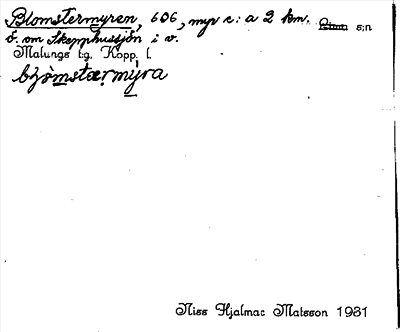 Blomstermyren, 606, myr c:a 2 km. Lima s:n
ö. om Skepphussjön i v.
Malungs t:g. Kopp. l.
Nils Hjalmar Matsson 1931